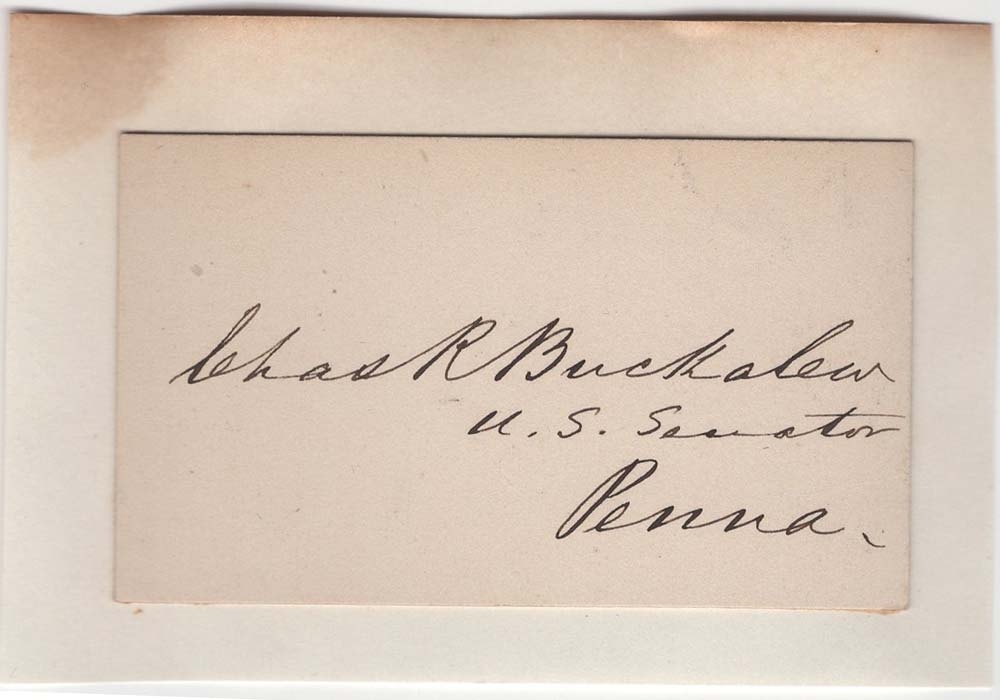 Chas R Buckalew
U. S. Senator
Penna.